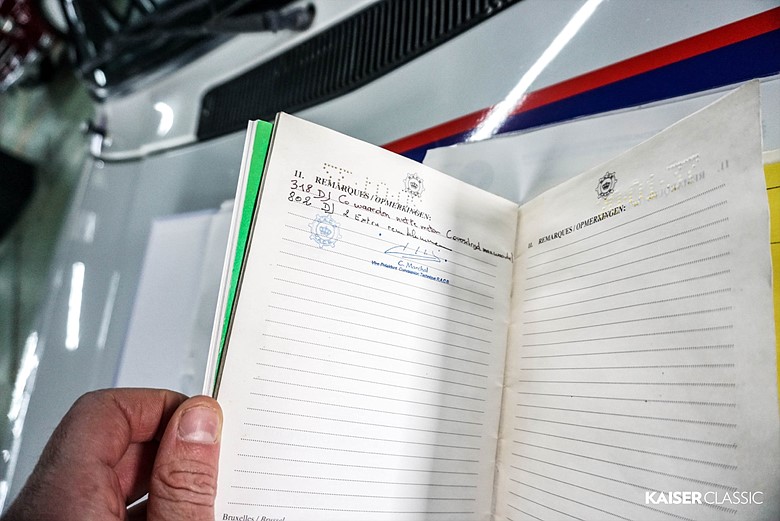 11. REMARQUES / OPMERKINGEN:
318 DJ Co waarden niet meten
802 DJ 2 Extra remklauwen
C. Marchal
Vice-Président Commission Technique R.A.C.B.
Bruxelles / Brussel
11. REMARQUES / OPMERKINGEN:
KAISER CLASSIC